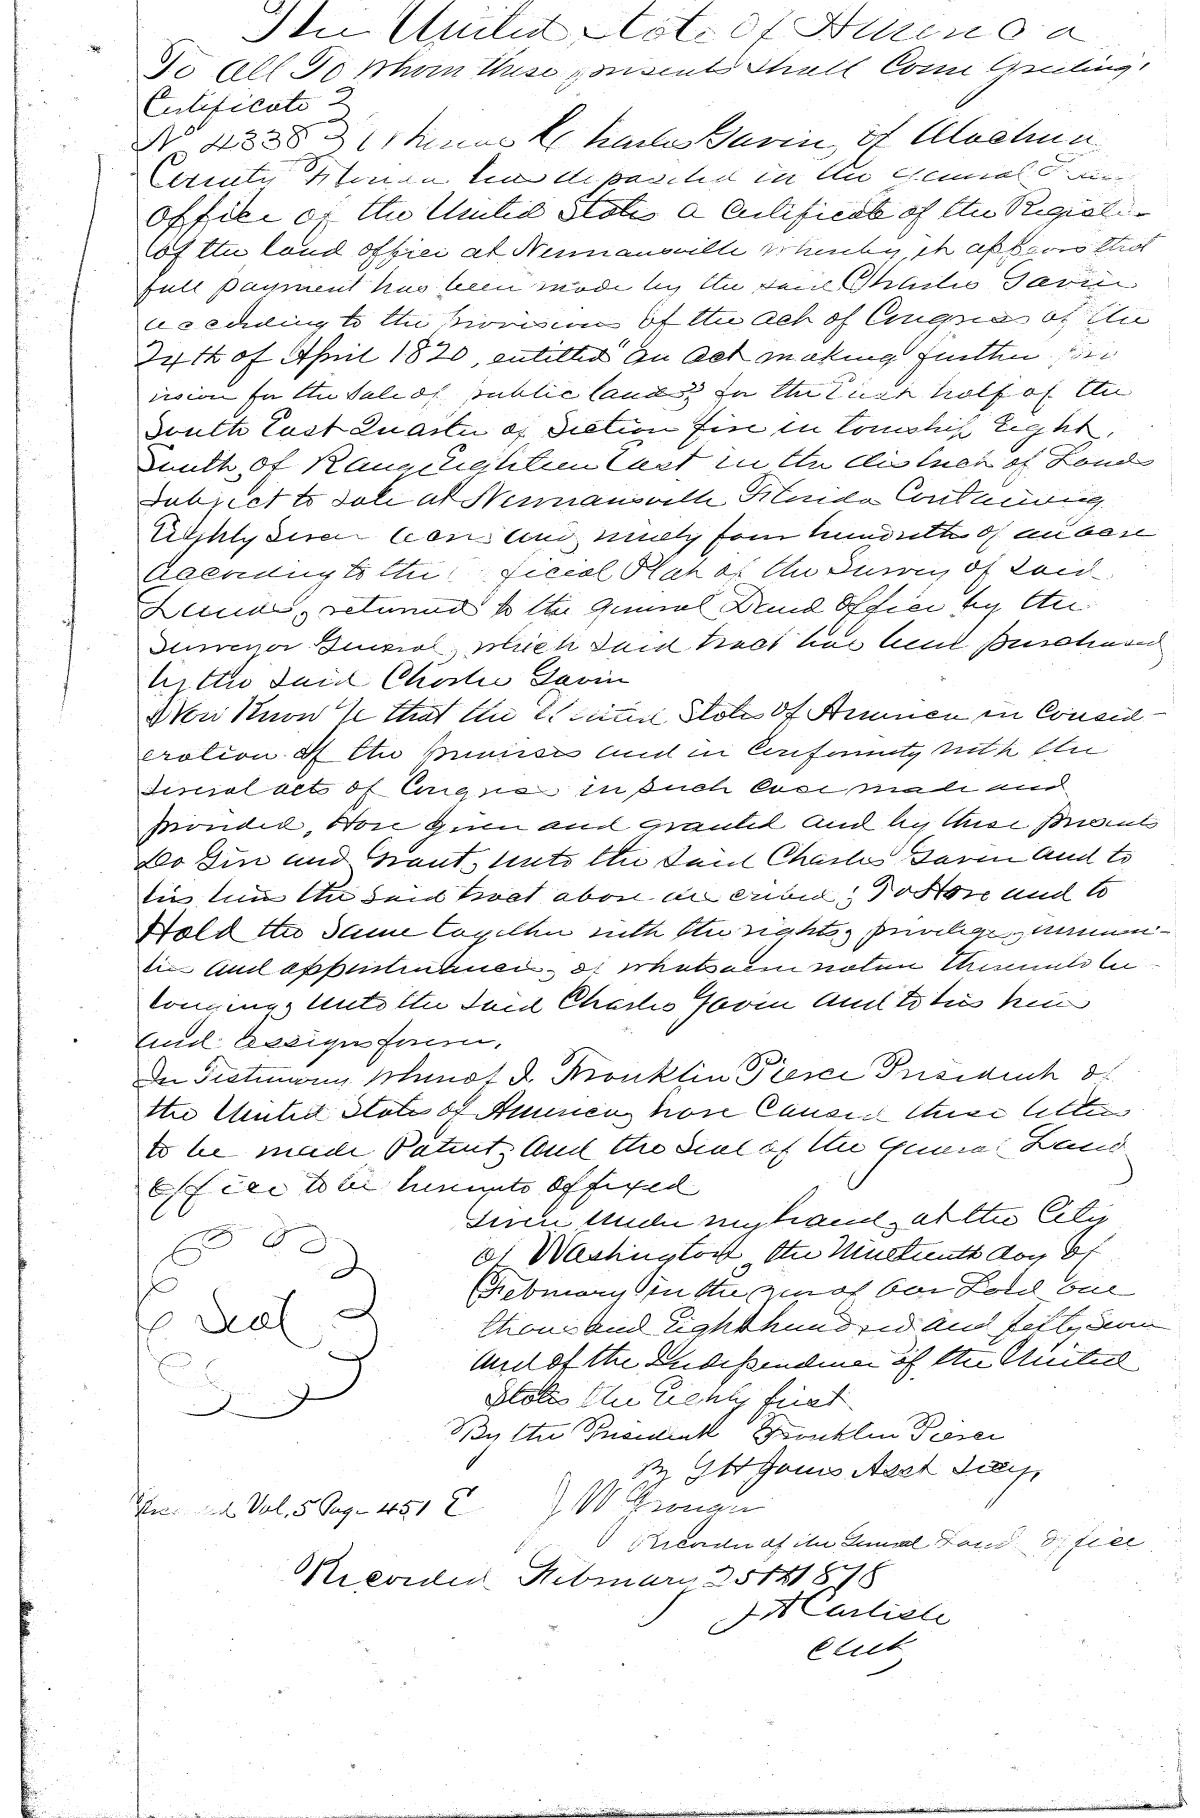 The United State Of America
To All To Whom these presents Shall Come Greeting,
Certificate
No 4338 Whereas Charles Gavin, of Alachua
County Florida has deposited in the General Land
Office of the United States a Certificate of the Register
of the land office at Newnansville whereby it appears that
full payment has been made by the said Charles Gavin
according to the provisions of the act of Congress of the
24th of April 1820, entitled "an act making further pro
vision for the Sale of public lands" for the East half of the
South East Quarter of Section five in township Eight,
South, of Range Eighteen East in the district of Lands
Subject to Sale at Newnansville Florida Containing
Eighty Seven acres and ninety four hundredths of an acre
According to the official Plat of the Survey of Said
Lands, returned to the General Land Office by the
Surveyor General, which Said tract has been purchased
by the Said Charles Gavin
Now Know Ye that the United States Of America in Consid-
eration of the premises and in Conformity with the
Several acts of Congress in such Case made and
provided, Have given and granted and by these presents
Do Give and Grant, unto the Said Charles Gavin and to
his heirs the Said tract above described; To Have and to
Hold the Same together with the rights, privileges, immuni-
ties and appurtenances, of whatsoever nature thereunto be-
longing, Unto the Said Charles Gavin and to his heirs
and assigns forever.
In Testimony Whereof I, Franklin Pierce President of
the United States of America, have Caused these letters
to be made Patent, and the Seal of the General Land
Office to be hereunto affixed
Given under my hand, at the City
of Washington, the Nineteenth day of
February in the year of our Lord one
thousand Eight hundred and fifty Seven
and of the Independence of the United
States the Eighty first
By the President Franklin Pierce
By G H Jones Asst Secy,
Seal
Recorded Vol, 5 Page 451
Granger
Recorder of the General Land Office
Recorded February 25th 1878
J A Carlisle
Clerk